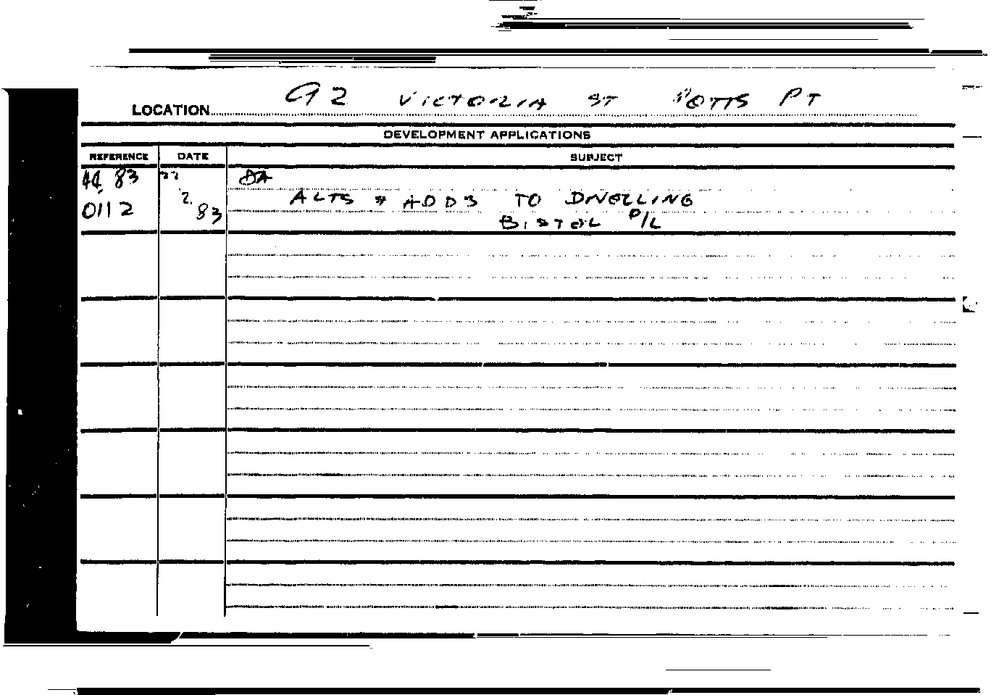 LOCATION 92 VICTORIA ST POTTS PT
DEVELOPMENT APPLICATIONS
REFERENCE DATE SUBJECT
44 83 22 DA
0112 2. 83 ALTS & ADDS TO DWELLING
P/L